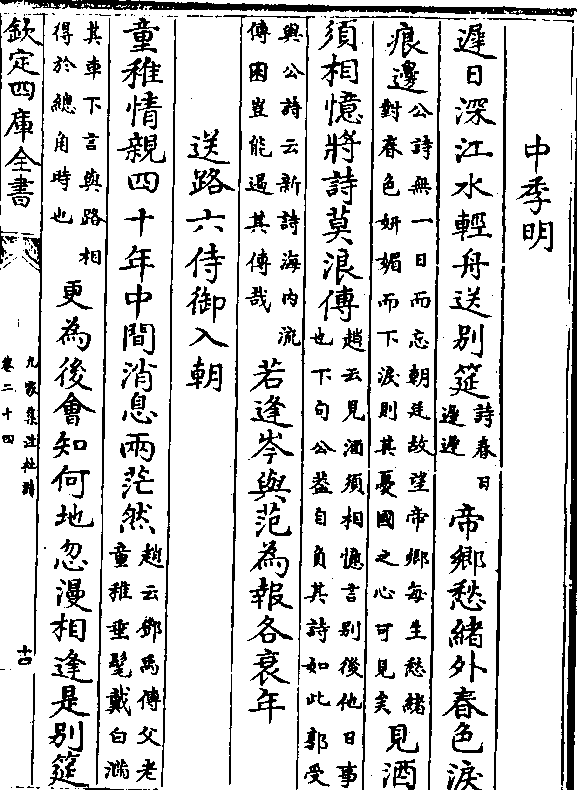 中季明
遲日深江水輕舟送別筵詩春日遲遲帝鄉愁緒外春色淚
痕邊公詩無一日而忘朝廷故望帝鄉每生愁緒對春色妍媚而下淚則其憂國之心可見矣見酒
須相憶將詩莫浪傳趙云見酒須相憶言別後他日事也下句公葢自負其詩如此郭受
與公詩云新詩海內流傳困豈能過其傳哉若逢岑與范為報各衰年
送路六侍御入朝
童稚情親四十年中間消息兩茫然趙云鄧禹傳父老童稚垂髦戴白滿
其車下言與路相得於總角時也更為後會知何地忽漫相逢是別筵
欽定四庫全書
九家集注杜詩
卷二十四
十四